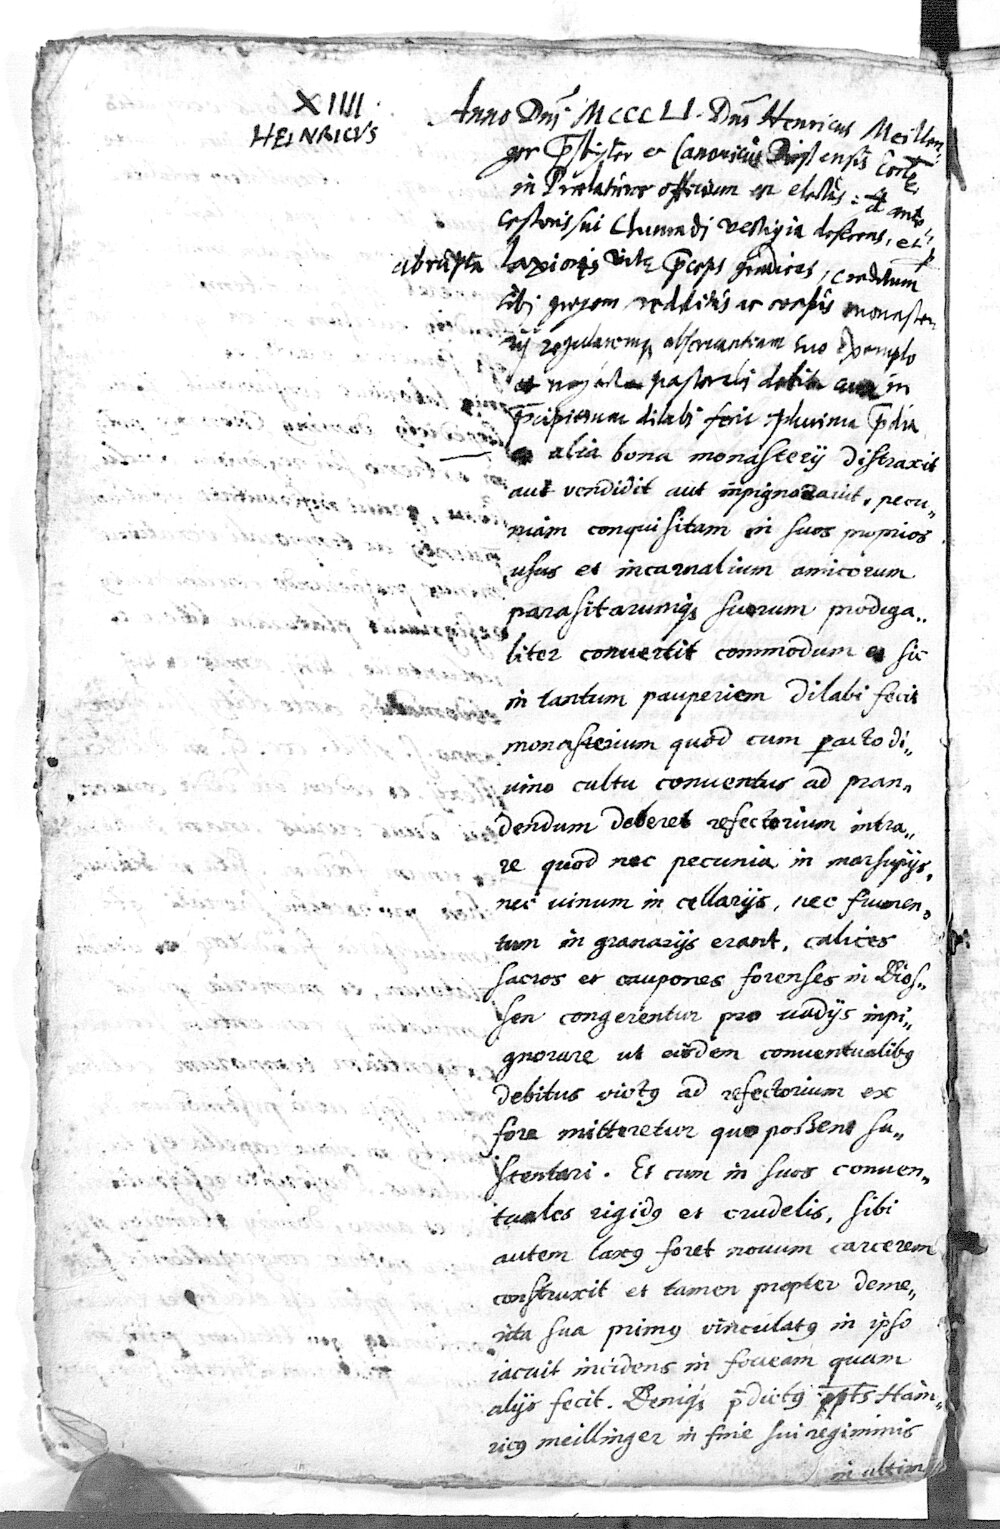 XIIII.
HEINRICVS
Anno Dnj MCCCLI. Dns Henricus Meillin-
ger Pbyter et Canonicus Diessensis
in Prelature officium est electus: ante
cessoris sui Chunradi vestigia deserens, et
abrupta laxioris vitę pceps gradiens, creditum
sibi gregem
rij regularemq observantiam suo exemplo
pastoralis debita in
pcipitium dilabi fecit plurima pdia
alia bona monasterij distraxit
aut vendidit aut inpignoravit, pecu„
niam conquisitam in suos proprios
usus et incarnalium amicorum
parasitarumq suorum prodiga„
liter convertit commodum et sic
in tantum pauperiem dilabi fecit
monasterium quod cum pacto di„
uino cultu conventus ad pran„
dendum deberet refectorium intra„
re quod nec pecunia in marsupijs,
nec uinum in cellarijs, nec frumen„
tum in granarijs erant, calices
sacros et caupones forenses in Dies„
sen congerentur pro uadijs inpi„
gnorare ut eisdem conventualibq
debitus victq ad refectorium ex
fore mitteretur quo possent su„
stentari. Et cum in suos conuen„
tuales rigidq et crudelis, sibi
autem laxq foret novum carcerem
construxit et tamen propter deme„
rita sua primq vinculatq in ipso
iacuit incidens in foveam quam
alijs fecit. Deniq pdictq ppts Hain„
ricq meillinger in fine sui regiminis
in ultim